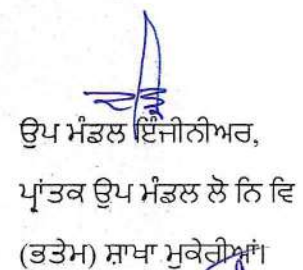 ਉਪ ਮੰਡਲ ਇੰਜੀਨੀਅਰ,
ਪ੍ਰਾਂਤਕ ਉਪ ਮੰਡਲ ਲੋ ਨਿ ਵਿ
(ਭਤੇਮ) ਸ਼ਾਖਾ ਮੁਕੇਰੀਆਂ।